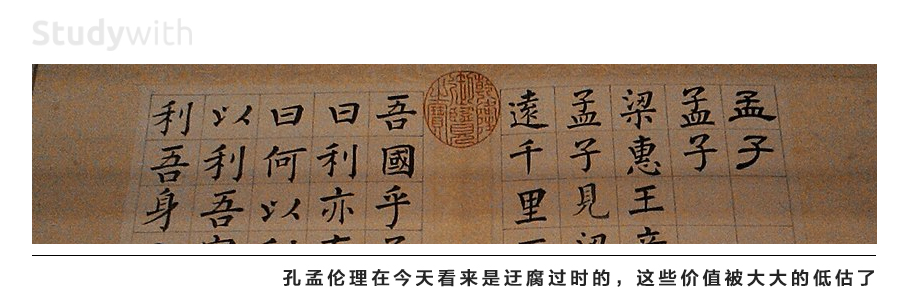 Studywith
孟子
孟子
梁惠王
孟子見
遠千里
吾國乎
曰利亦
曰何以
以利吾
利吾身
孔孟伦理在今天看来是迂腐过时的，这些价值被大大的低估了